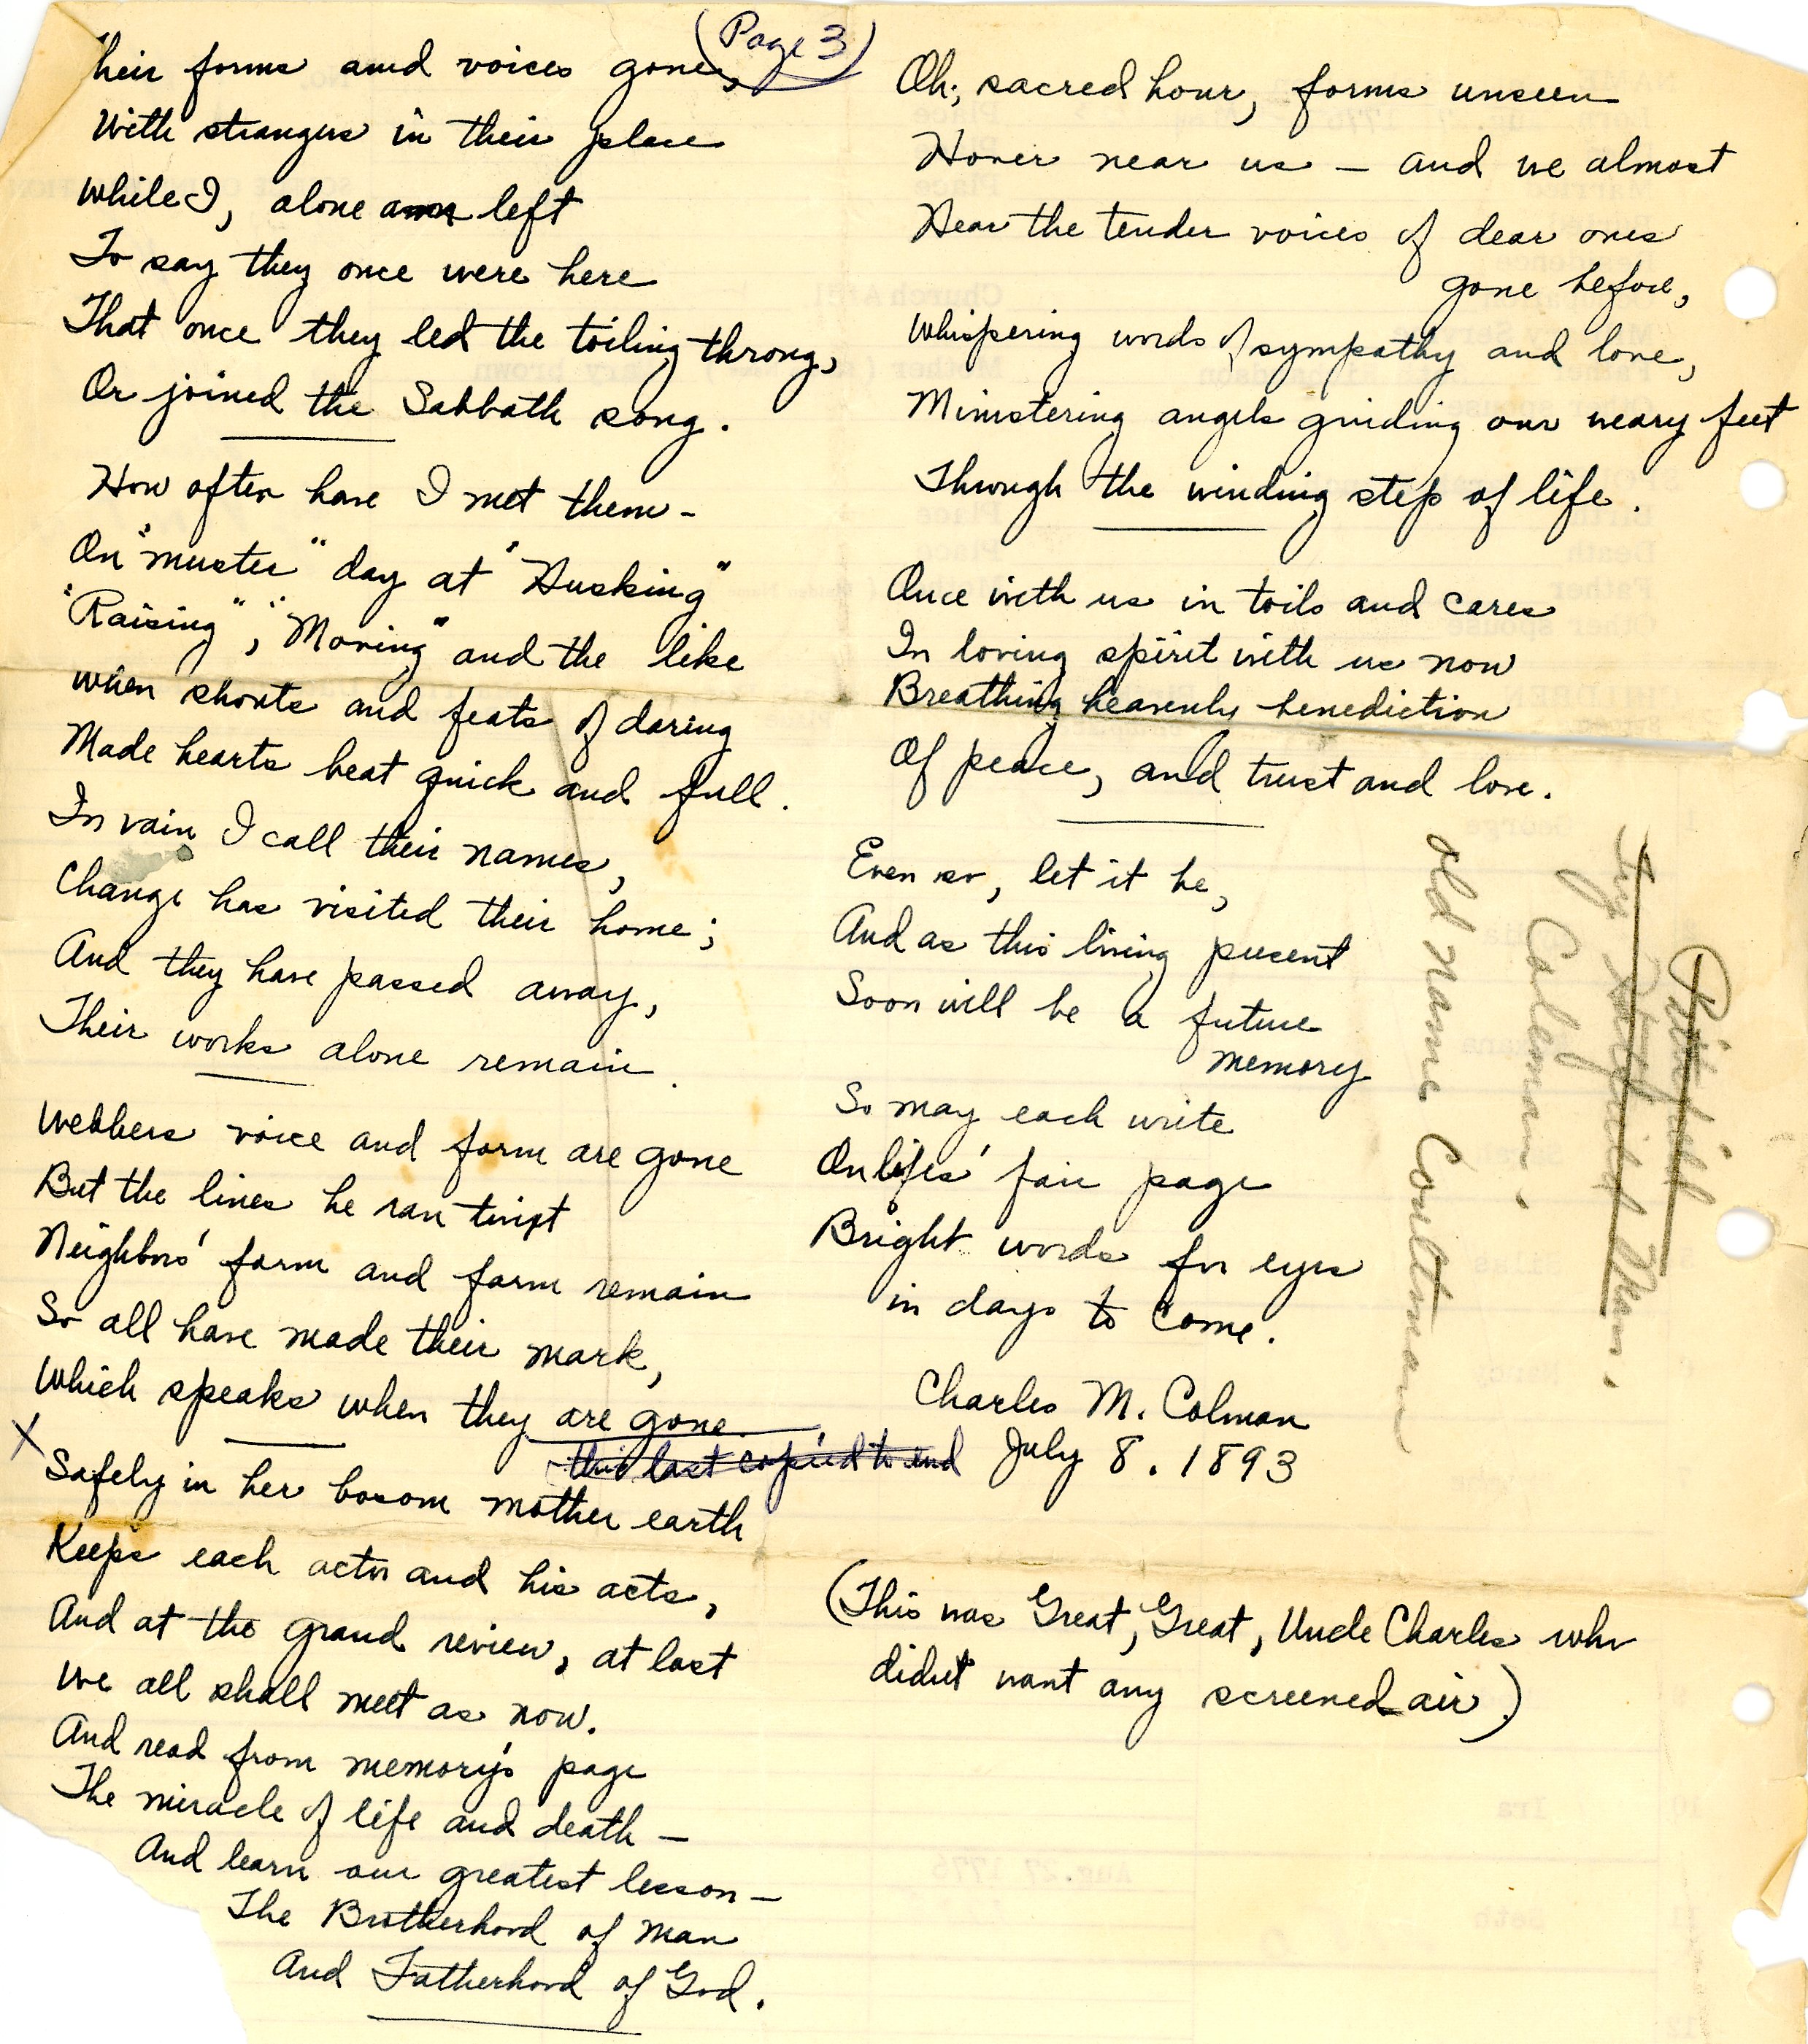 (Page 3)
heir forms and voices gone,
With strangers in their place
While I, alone am left
To say they once were here
That once they led the toiling throng,
Or joined the Sabbath song.
How often have I met them -
On "muster" day at "Husking"
"Raising", "Moving" and the like
when shouts and feats of daring
Made hearts beat quick and full.
In vain I call their names,
Change has visited their home;
And they have passed away,
Their works alone remain.
Webbers voice and form are gone
But the lines he ran twixt
Neighbors' farm and farm remain
So all have made their mark,
Which speaks when they are gone.
this last copied to end
X
Safely in her bosom mother earth
Keeps each actor and his acts,
And at the grand review, at last
we all shall meet as now.
And read from memory's page
The miracle of life and death -
And learn our greatest lesson -
The Brotherhood of man
And Fatherhood of God.
Oh; sacred hour, forms unseen
Hover near us - and we almost
Hear the tender voices of dear ones
gone before,
Whispering words of sympathy and love,
Ministering angels guiding our weary feet
Through the winding steps of life.
Once with us in toils and cares
In loving spirit with us now
Breathing heavenly benediction
Of peace, and trust and love.
Even so, let it be,
And as this living present
Soon will be a future
memory
So may each write
On lifes' fair page
Bright words for eyes
in days to come.
Charles M. Colman
July 8. 1893
(This was Great, Great, Uncle Charles who
didn't want any screened air.)
Pittsfield
Coleman.
old name Coultman